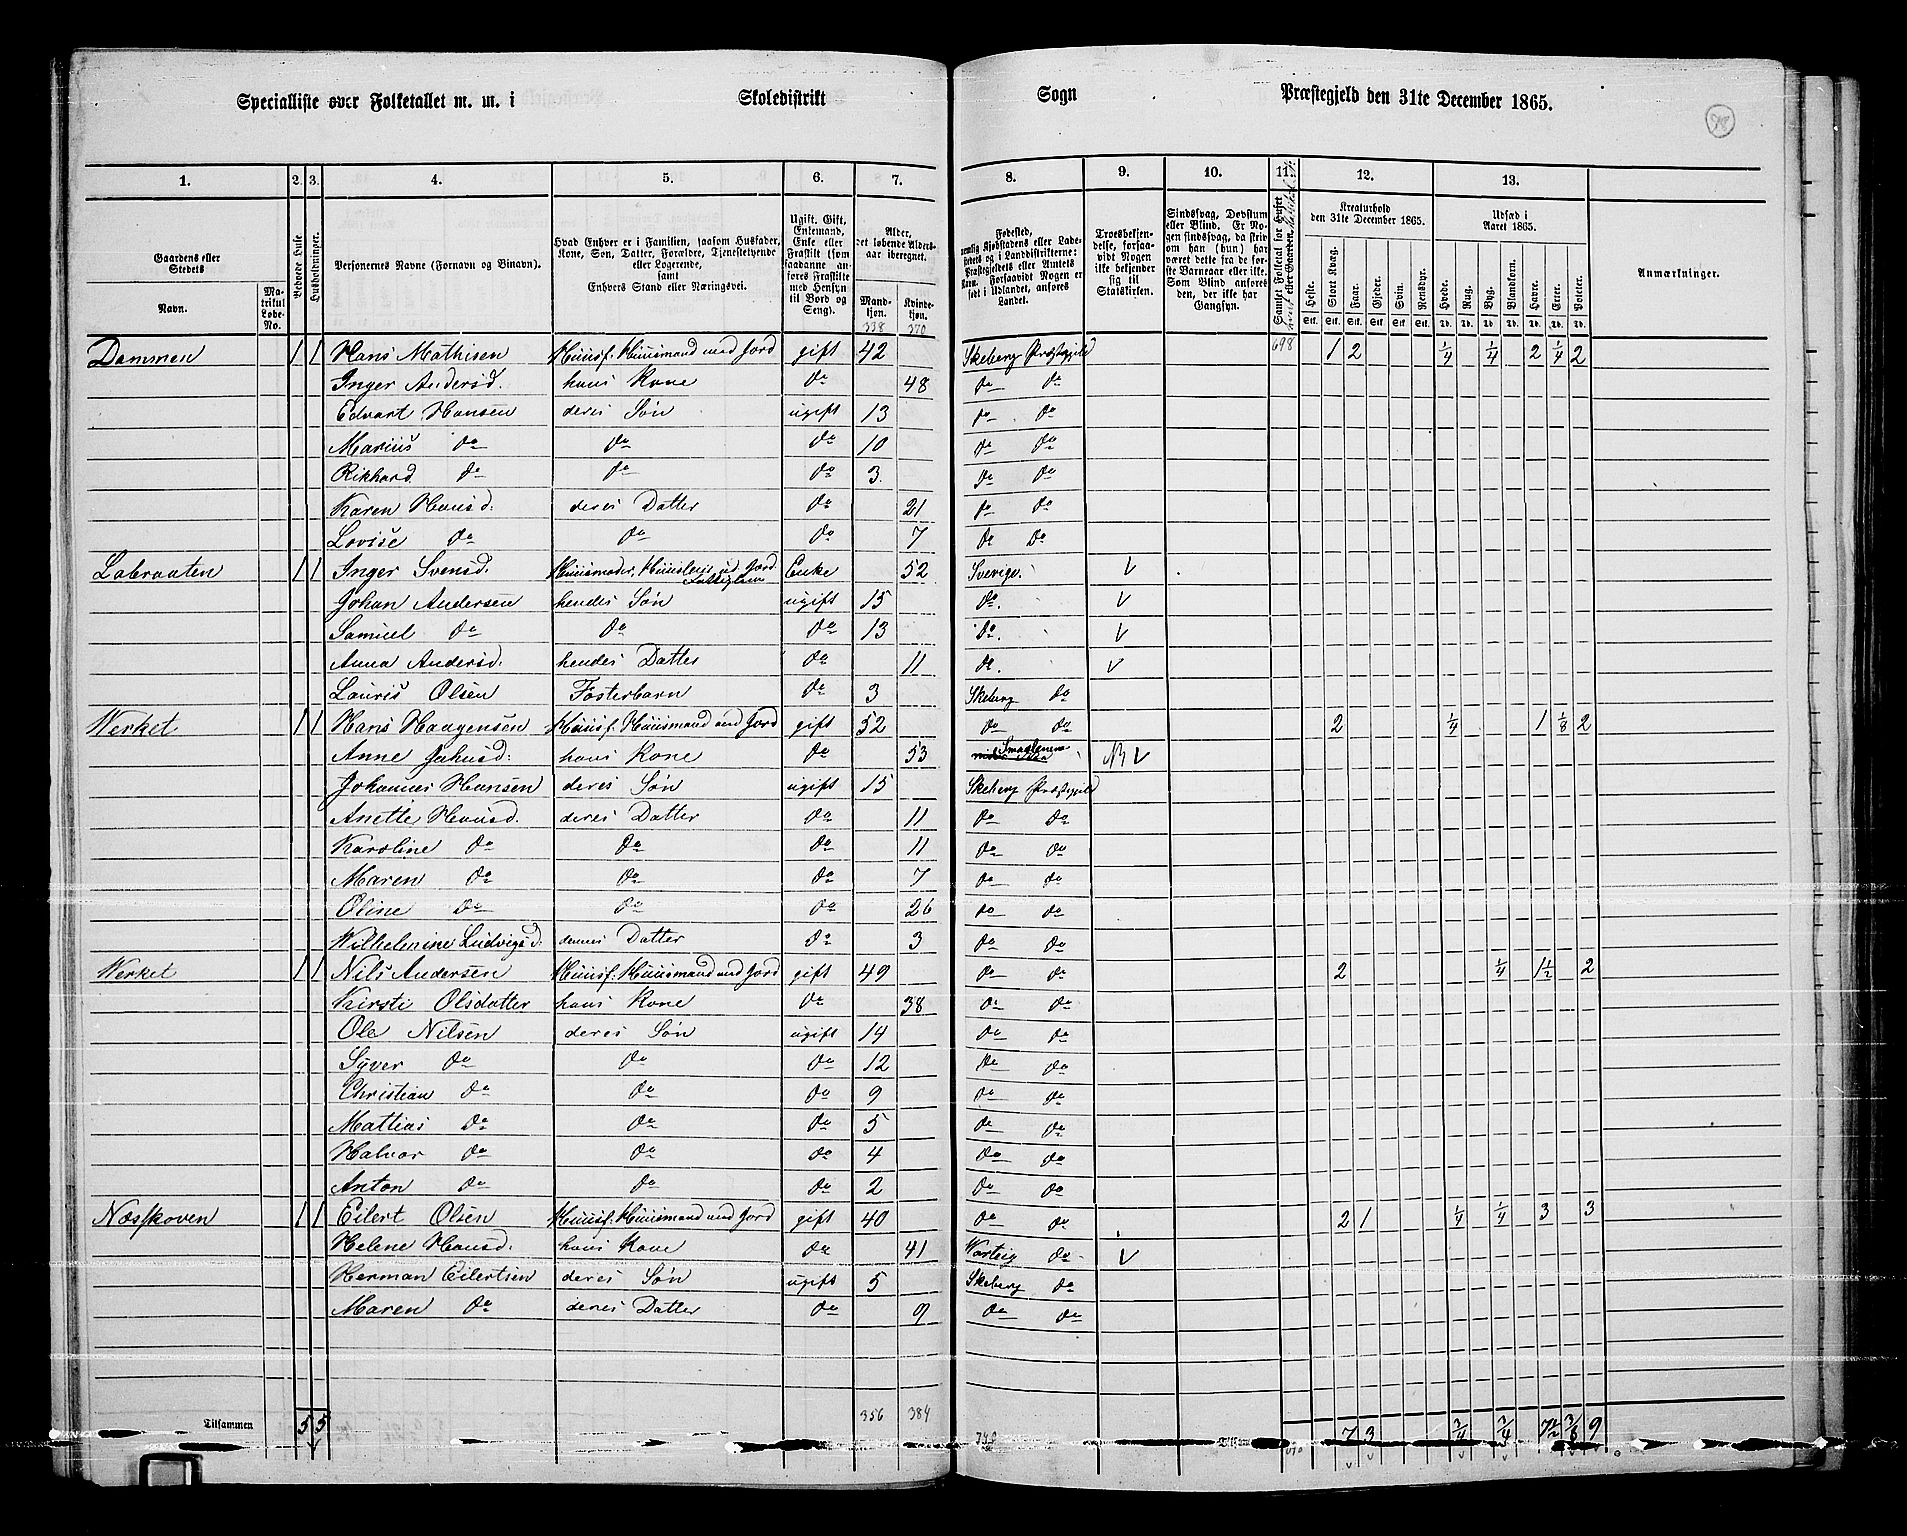 Specialliste over Folketallet m. m. i Skoledistrikt Sogn Præstegjeld den 31te December 1865.
1. 2. 3. 4. 5. 6. 7. 8. 9. 10. 11. 12. 13.
Gaardens eller Stedets Navn. Matrikul Løbe-No. Beboede Huse. Husholdninger. Personernes Navne (Fornavn og Binavn). Hvad Enhver er i Familien, saasom Husfader, Kone, Søn, Datter, Forældre, Tjenestetyende eller Logerende, samt Enhvers Stand eller Næringsvei. Ugift, Gift, Enkemand, Enke eller Fraskilt (som saadanne anføres Fraskilte med Hensyn til Bord og Seng). Alder, det løbende Alders-aar iberegnet. Mandkjøn. Kvindekjøn. 338 370
Fødested, Troesbekjendelse, forsaavidt Nogen ikke bekjender sig til Statskirken. Sindssvag, Døvstum eller Blind. Kreaturhold den 31te December 1865. Udsæd i Aaret 1865. Anmærkninger.
Heste. Stort Kvæg. Faar. Gjeder. Svin. Rensdyr. Hvede. Rug. Byg. Blandkorn. Havre. Erter. Poteter.
Dammen 1 1 Hans Mathisen Huusf. Huusmand med Jord gift 42 Skeberg Præstegjeld 698 1 2 1/4 1/4 2 1/4 2
Inger Andersd. hans Kone do 48 do do
Edvart Hansen deres Søn ugift 13 do do
Marius do do do 10 do do
Rikhard do do do 3. do do
Karen Hansd. deres Datter do 21 do do
Lovise do do do 7 do do
Labraaten 1 1 Inger Svensd. Huusmoder, Jord Enke 52 Sverige. V
Johan Andersen hendes Søn ugift 15 do. V
Samuel do do do 13 do. V
Anna Andersd. hendes Datter do 11 do. V
Lauris Olsen Fosterbarn do 3 Skeberg do
Verket 1 1 Hans Haagensen Huusf. Huusmand med Jord gift 52 do do 2 1/4 1 1/8 2
Anne Johnsd. hans Kone do 53 V
Johannes Hansen deres Søn ugift 15 Skeberg Præstegjeld
Anette Hansd. deres Datter do 11 do do
Karoline do do do 11 do do
Maren do do do 7 do do
Oline do do do 26 do do
Wilhelmine Ludvigsd. dennes Datter do 3 do do
Verket 1 1 Nils Andersen Huusf. Huusmand med Jord gift 49 do do 2 1/4 1 1/2 2
Kirsti Olsdatter hans Kone do 38 do do
Ole Nilsen deres Søn ugift 14 do do
Syver do do do 12 do do
Christian do do do 9 do do
Mattias do do do 5 do do
Halvor do do do 4 do do
Anton do do do 2 do do
Næsskoven 1 1 Eilert Olsen Huusf. Huusmand med Jord gift 40 do do 2 1 1/4 1/4 3 3
Helene Hansd. hans Kone do 41 Varteig do V
Herman Eilertsen deres Søn ugift 5 Skeberg do
Maren do deres Datter do 9 do do
Tilsammen 5 5 356 384 7 3 3/4 3/4 7 1/2 3/8 9